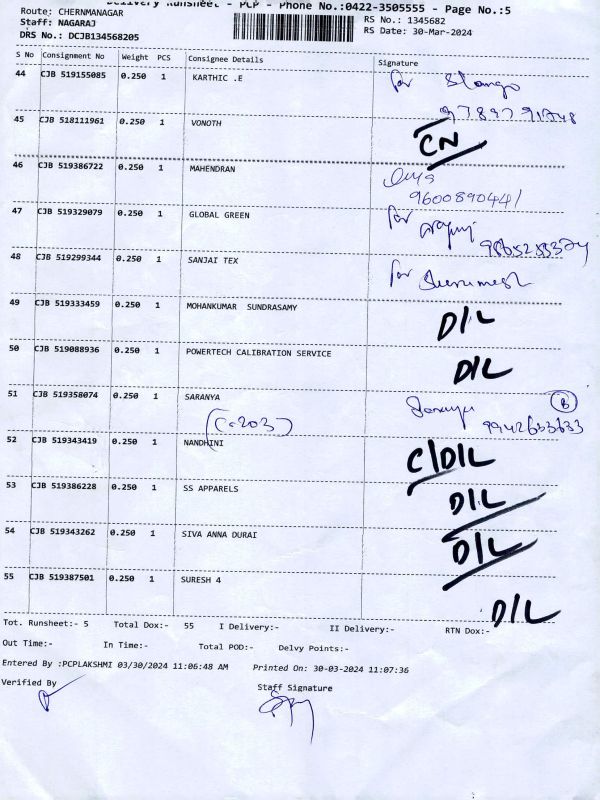 Delivery Runsheet - PCP - Phone No.:0422-3505555 - Page No.:5
Route: CHERNMANAGAR
Staff: NAGARAJ
DRS No.: DCJB134568205
RS No.: 1345682
RS Date: 30-Mar-2024
S No Consignment No Weight PCS Consignee Details Signature
44 CJB 519155085 0.250 1 KARTHIC .E for
45 CJB 518111961 0.250 1 VONOTH CN
46 CJB 519386722 0.250 1 MAHENDRAN
9600890441
47 CJB 519329079 0.250 1 GLOBAL GREEN for
48 CJB 519299344 0.250 1 SANJAI TEX for
49 CJB 519333459 0.250 1 MOHANKUMAR SUNDRASAMY D/L
50 CJB 519088936 0.250 1 POWERTECH CALIBRATION SERVICE D/L
51 CJB 519358074 0.250 1 SARANYA Saranya B
(C-203) 9942653633
52 CJB 519343419 0.250 1 NANDHINI C/D/L
53 CJB 519386228 0.250 1 SS APPARELS D/L
54 CJB 519343262 0.250 1 SIVA ANNA DURAI D/L
55 CJB 519387501 0.250 1 SURESH 4 D/L
Tot. Runsheet:- 5 Total Dox:- 55 I Delivery:- II Delivery:- RTN Dox:-
Out Time:- In Time:- Total POD:- Delvy Points:-
Entered By :PCPLAKSHMI 03/30/2024 11:06:48 AM Printed On: 30-03-2024 11:07:36
Verified By Staff Signature